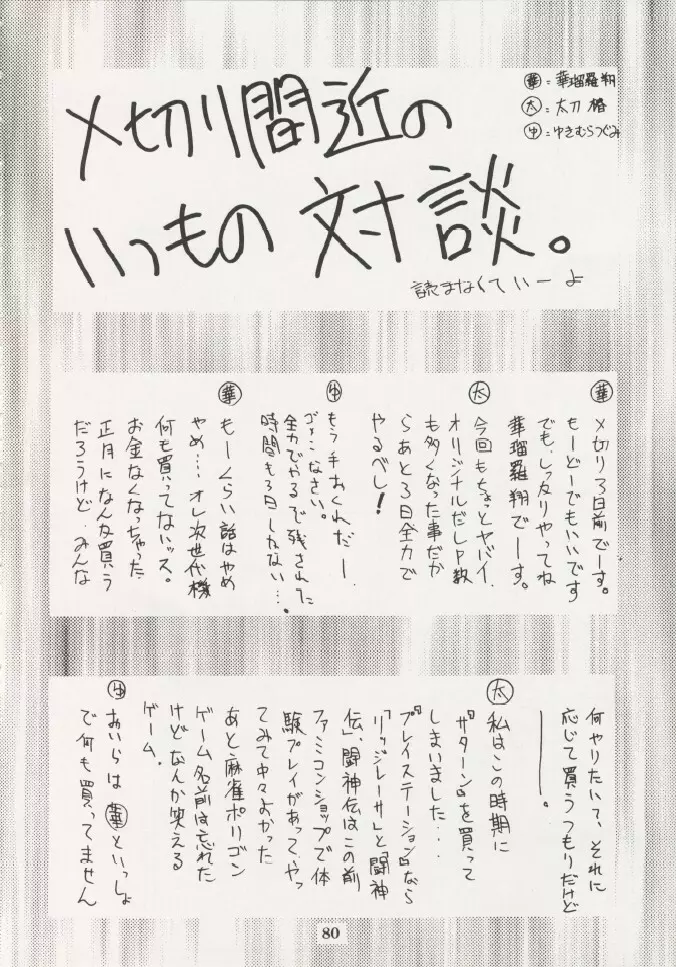 〆切り間近の
いつもの対談。
読まなくていーよ
華=華瑠羅翔
太=太刀楯
ゆ=ゆきむらつぐみ
華
〆切り3日前でーす。
もーどーでもいいです
でも、しっかりやってね
華瑠羅翔でーす。
太
今回もちょっとヤバイ。
オリジナルだしP数
も多くなった事だか
らあと3日全力で
やるべし!
ゆ
もう手おくれだー
ごめんなさい。
全力でやるで残された
時間も3日しかない…。
華
もーくらい話はやめ
やめ…オレ次世代機
何も買ってないッス。
お金なくなっちゃった
正月になんか買う
だろうけど、みんな
何やりたいて、それに
応じて買うつもりだけど
――。
太
私はこの時期に
『サターン』を買って
しまいました…
『プレイステーション』なら
「リッジレーサ」と「闘神
伝」、闘神伝はこの前
ファミコンショップで体
験プレイがあって、やっ
てみて中々よかった
あと麻雀ポリゴン
ゲーム名前は忘れた
けどなんか笑える
ゲーム。
ゆ
おいらは華といっしょ
で何も買ってません
80